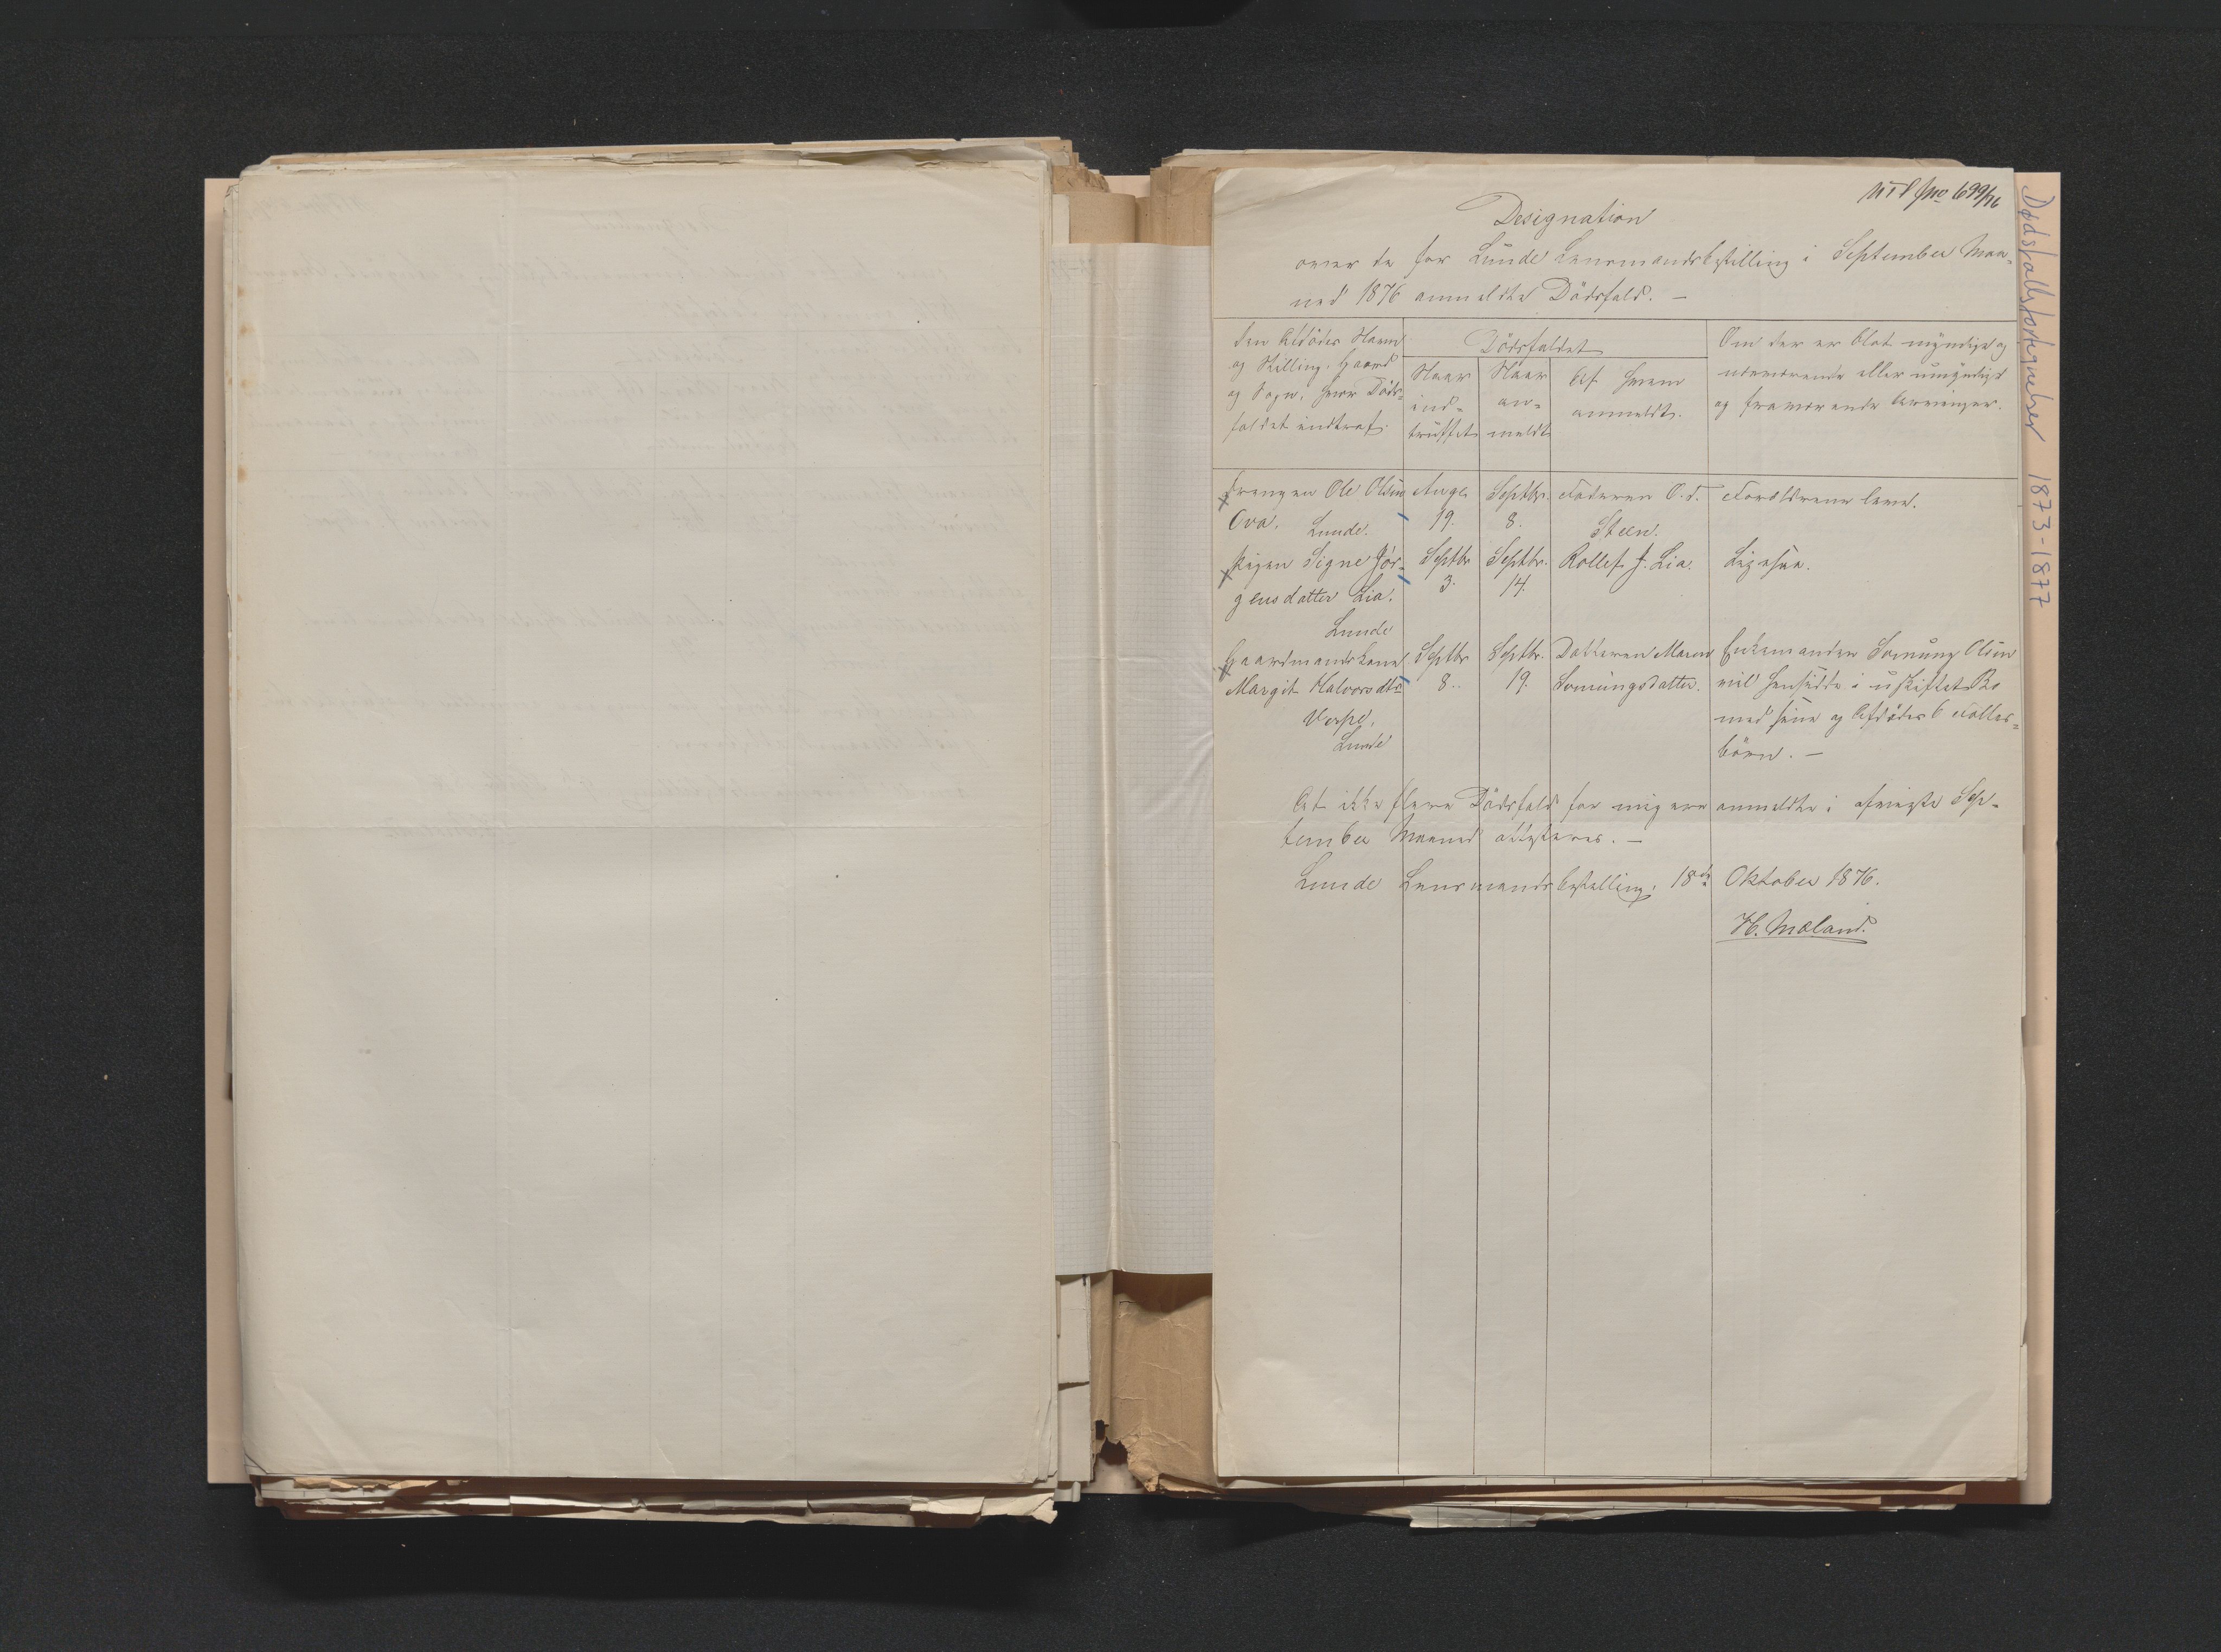 Til Jno 699/76
Designation
over de for Lunde Lensmandsbestilling i September Maa-
ned 1876 anmeldte Dödsfald. —
Den Afdödes Navn
og Stilling. Gaard
og Sogn, hvor Döds-
faldet indtraf.
Dödsfaldet
Naar
ind-
truffet
Naar
an-
meldt
Af hvem
anmeldt.
Om der er blot myndige og
nærværende eller umyndige
og fraværende Arvinger.
Drengen Ole Olsen
Ova. Lunde.
Augt.
19.
Septbr.
8.
Faderen O. T.
Steen.
Forældrene leve.
Pigen Signe Jör-
gensdatter Lia.
Lunde
Septbr
3.
Septbr.
14.
Rollef J. Lia.
Ligesaa.
Gaardmandskone
Margit Halvorsdtr
Verpe,
Lunde
Septbr
8.
Septbr.
19.
Datteren Maren
Sveinungsdatter.
Enkemanden Sveinung Olsen
vil hensidde i uskiftet Bo
med sine og Afdödes 6 Fælles-
börn. —
At ikke flere Dödsfald for mig ere anmeldte i afvigte Sep-
tember Maaned attesteres. —
Lunde Lensmandsbestilling, 18de Oktober 1876.
H. Mæland.
Dødsfallsfortegnelser 1873-1877